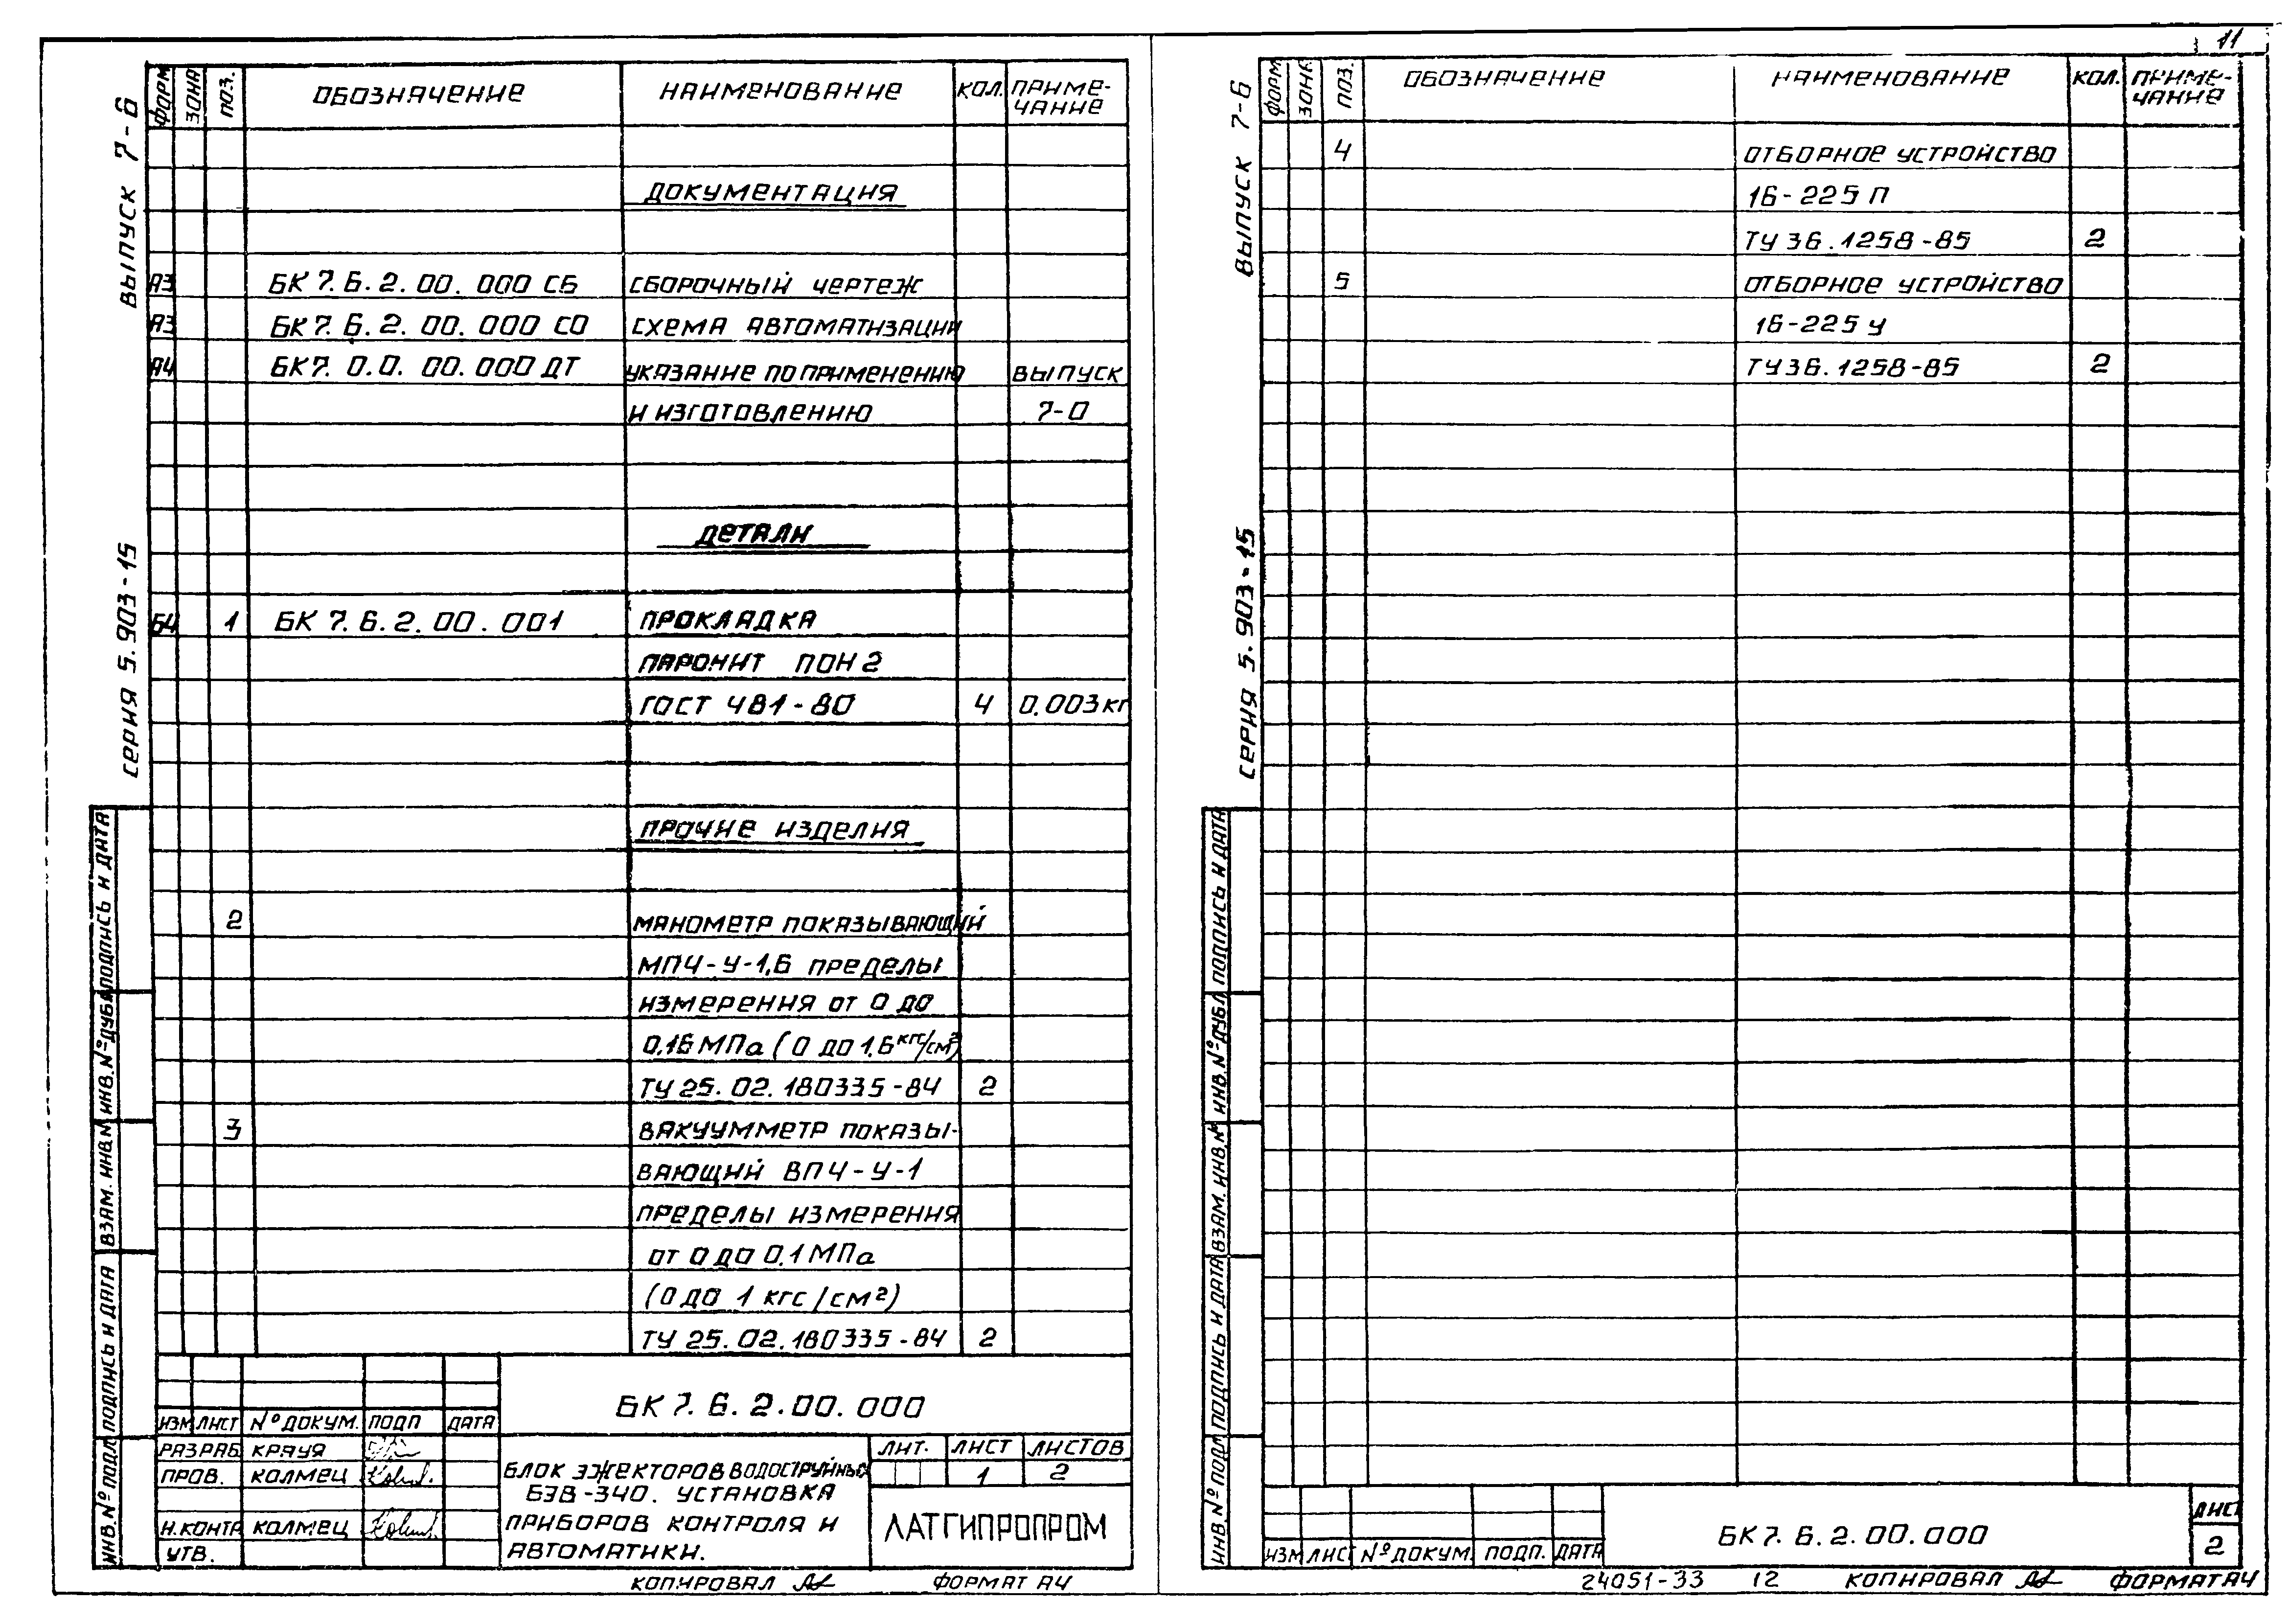 11
ВЫПУСК 7-6
СЕРИЯ 5.903-15
ФОРМ ЗОНА ПОЗ. ОБОЗНАЧЕНИЕ НАИМЕНОВАНИЕ КОЛ. ПРИМЕ-
ЧАНИЕ
ДОКУМЕНТАЦИЯ
А3 БК 7.6.2.00.000 СБ СБОРОЧНЫЙ ЧЕРТЕЖ
А3 БК 7.6.2.00.000 СО СХЕМА АВТОМАТИЗАЦИИ
А4 БК 7.0.0.00.000 ДТ УКАЗАНИЕ ПО ПРИМЕНЕНИЮ ВЫПУСК
И ИЗГОТОВЛЕНИЮ 7-0
ДЕТАЛИ
Б4 1 БК 7.6.2.00.001 ПРОКЛАДКА
ПАРОНИТ ПОН 2
ГОСТ 481-80 4 0.003 кг
ПРОЧИЕ ИЗДЕЛИЯ
2 МАНОМЕТР ПОКАЗЫВАЮЩИЙ
МП4-У-1,6 ПРЕДЕЛЫ
ИЗМЕРЕНИЯ ОТ 0 ДО
0,16 МПа (0 ДО 1,6 кгс/см²)
ТУ 25.02.180335-84 2
3 ВАКУУММЕТР ПОКАЗЫ-
ВАЮЩИЙ ВП4-У-1
ПРЕДЕЛЫ ИЗМЕРЕНИЯ
ОТ 0 ДО 0,1 МПа
(0 ДО 1 кгс/см²)
ТУ 25.02.180335-84 2
ПОДПИСЬ И ДАТА
ИНВ.№ ДУБЛ
ВЗАМ. ИНВ.№
ПОДПИСЬ И ДАТА
ИНВ.№ ПОДЛ
БК 7.6.2.00.000
ИЗМ ЛИСТ № ДОКУМ. ПОДП ДАТА
РАЗРАБ КРАУЯ
ПРОВ. КОЛМЕЦ
Н.КОНТР КОЛМЕЦ
УТВ.
БЛОК ЭЖЕКТОРОВ ВОДОСТРУЙНЫХ
БЭВ-340. УСТАНОВКА
ПРИБОРОВ КОНТРОЛЯ И
АВТОМАТИКИ.
ЛИТ. ЛИСТ ЛИСТОВ
1 2
ЛАТГИПРОПРОМ
КОПИРОВАЛ ФОРМАТ А4
ВЫПУСК 7-6
СЕРИЯ 5.903-15
ФОРМ ЗОНА ПОЗ. ОБОЗНАЧЕНИЕ НАИМЕНОВАНИЕ КОЛ. ПРИМЕ-
ЧАНИЕ
4 ОТБОРНОЕ УСТРОЙСТВО
16-225 П
ТУ 36.1258-85 2
5 ОТБОРНОЕ УСТРОЙСТВО
16-225 У
ТУ 36.1258-85 2
ПОДПИСЬ И ДАТА
ИНВ.№ ДУБЛ
ВЗАМ. ИНВ.№
ПОДПИСЬ И ДАТА
ИНВ.№ ПОДЛ
ИЗМ ЛИСТ № ДОКУМ. ПОДП. ДАТА
БК 7.6.2.00.000
ЛИСТ
2
24051-33 12 КОПИРОВАЛ ФОРМАТ А4